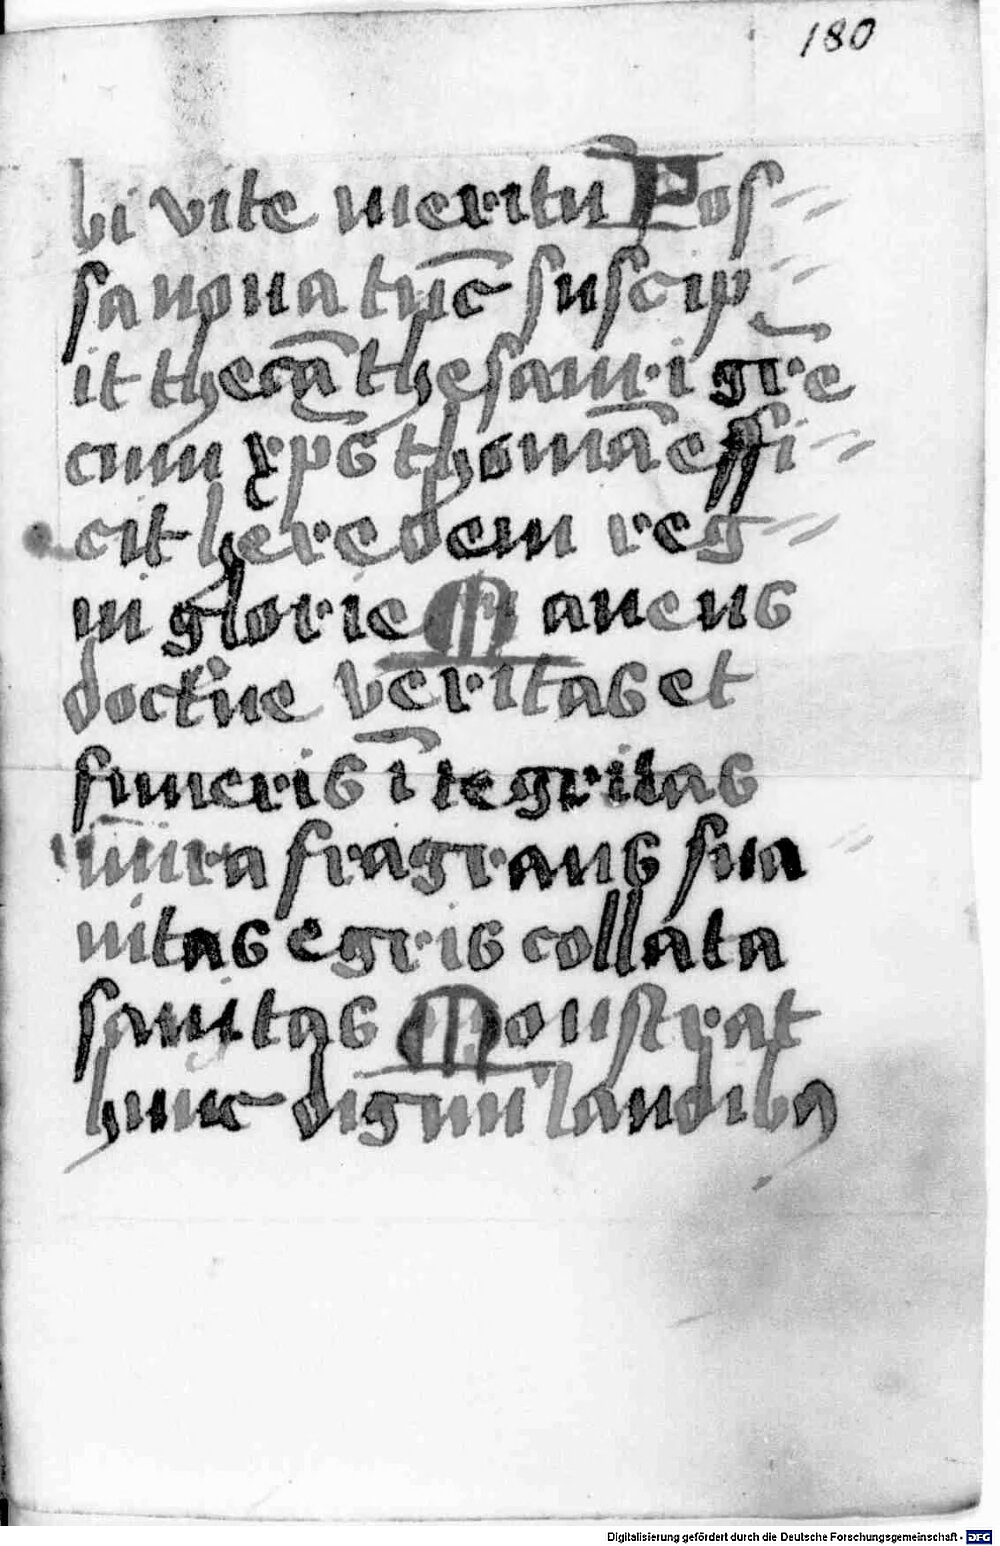 180
bi vite meritu Fos-
sa noua tūc suscip-
it thecā thesauri grē
cum xp̄s thomā effi-
cit heredem reg-
ni glorie Manens
doctⁱne veritas et
funeris ītegritas
mira fragrans sua-
uitas egris collata
sanitas Monstrat
hunc dignū laudibꝰ
Digitalisierung gefördert durch die Deutsche Forschungsgemeinschaft - DFG